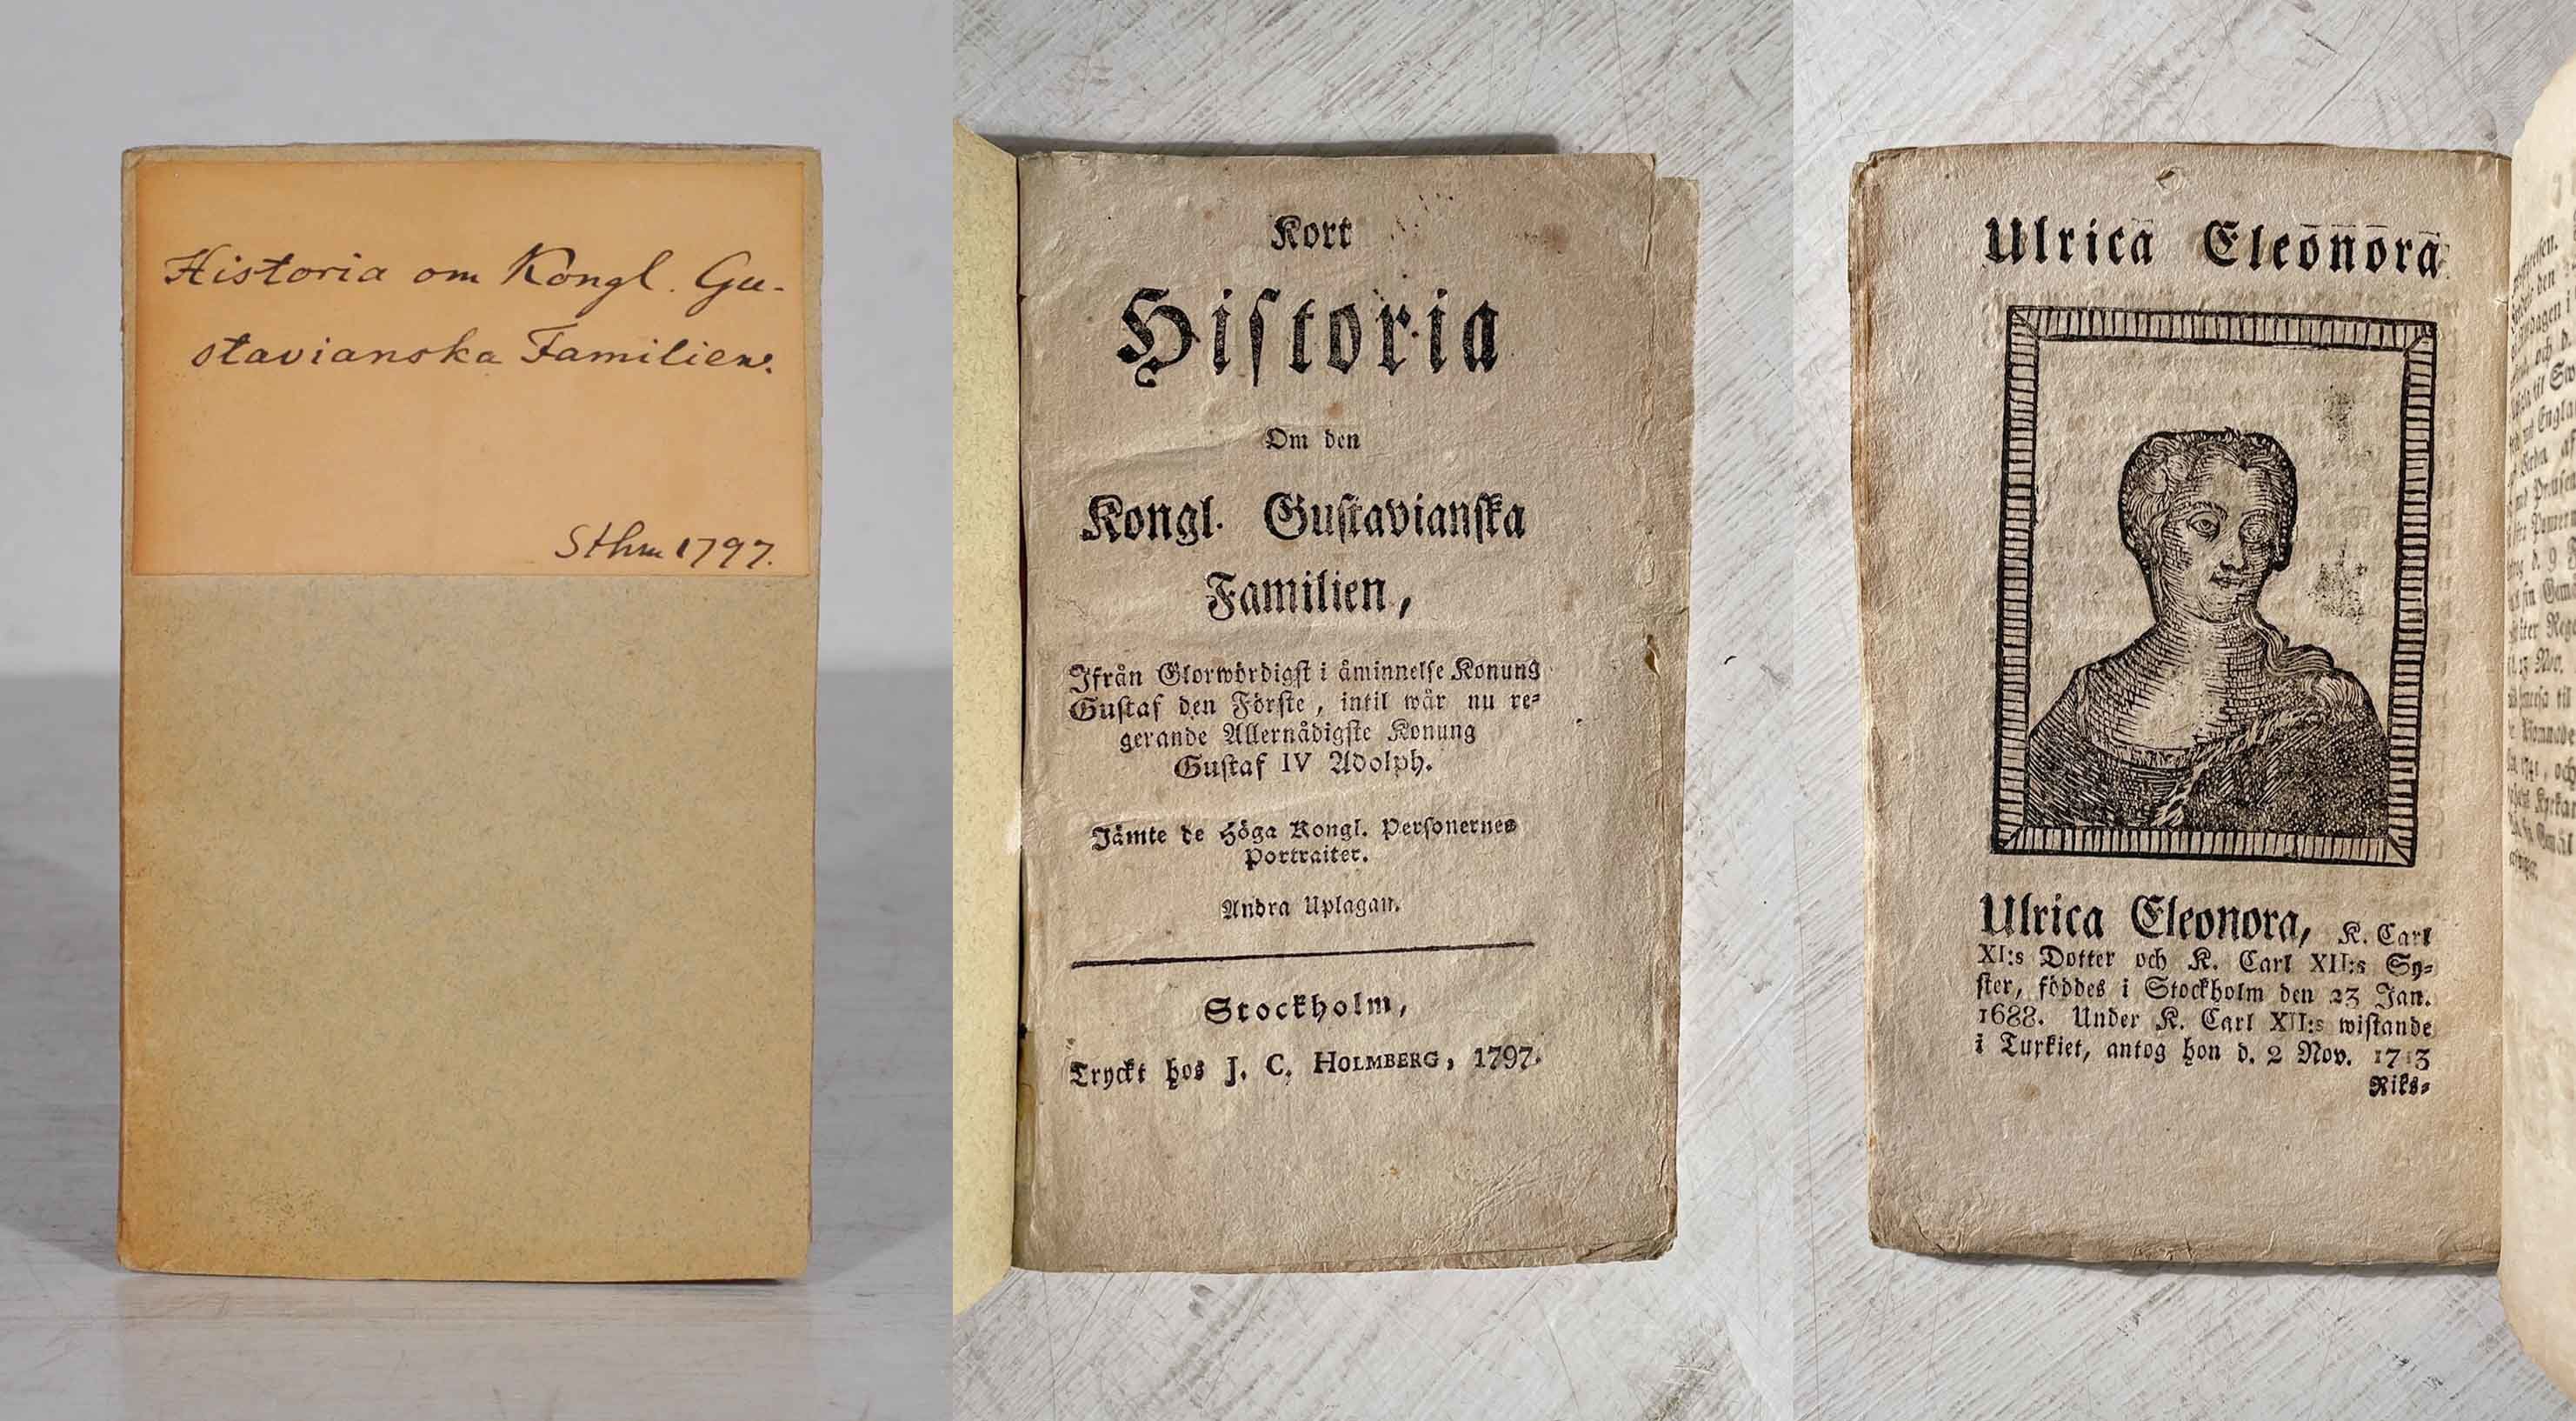 Historia om Kongl. Gu-
stavianska Familien.
Sthm 1797.
Kort
Hiſtoria
Om den
Kongl. Guſtavianſka
Familien,
Ifrån Glorwördigſt i åminnelſe Konung
Guſtaf den Förſte, intil wår nu re-
gerande Allernådigſte Konung
Guſtaf IV Adolph.
Jämte de Höga Kongl. Perſonernes
Portraiter.
Andra Uplagan.
Stockholm,
Tryckt hos J. C. HOLMBERG, 1797.
Ulrica Eleonora
Ulrica Eleonora, K. Carl
XI:s Dotter och K. Carl XII:s Sy-
ſter, föddes i Stockholm den 23 Jan.
1688. Under K. Carl XII:s wiſtande
i Turkiet, antog hon d. 2 Nov. 1713
Riks-